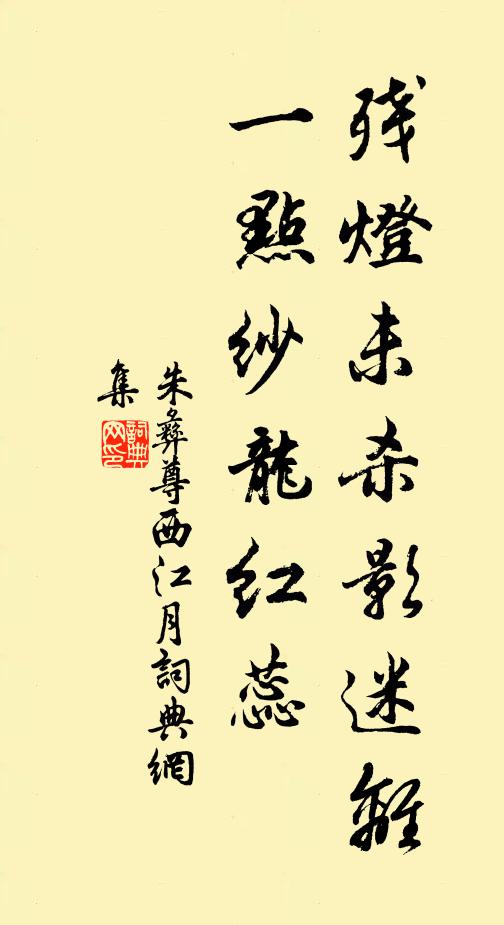 残燈未杀影迷離
一點紗龍红蕊
朱彝尊西江月詞典網
集
詞典网印